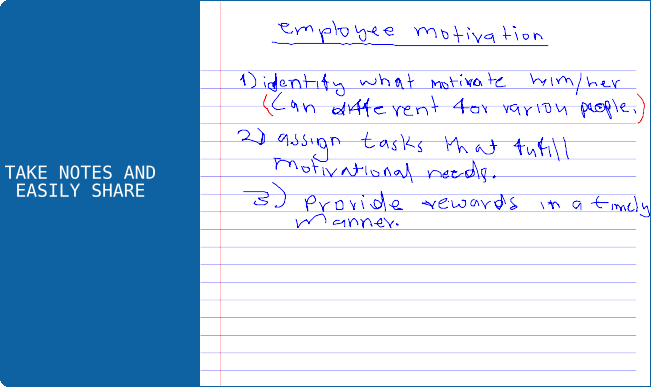 TAKE NOTES AND
EASILY SHARE
employee motivation
1) identify what motivate him/her
(Can different for variou people.)
2) assign tasks that fufill
motivational needs.
3) provide rewards in a timely
manner.